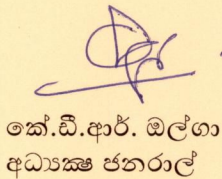 කේ.ඩී.ආර්. ඔල්ගා
අධ්‍යක්ෂ ජනරාල්